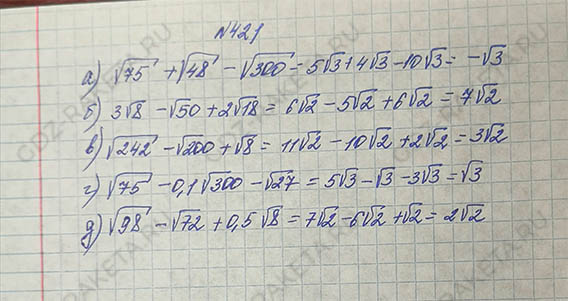 №421
а) √75 + √48 - √300 = 5√3 + 4√3 - 10√3 = -√3
б) 3√8 - √50 + 2√18 = 6√2 - 5√2 + 6√2 = 7√2
в) √242 - √200 + √8 = 11√2 - 10√2 + 2√2 = 3√2
г) √75 - 0,1√300 - √27 = 5√3 - √3 - 3√3 = √3
д) √98 - √72 + 0,5√8 = 7√2 - 6√2 + √2 = 2√2